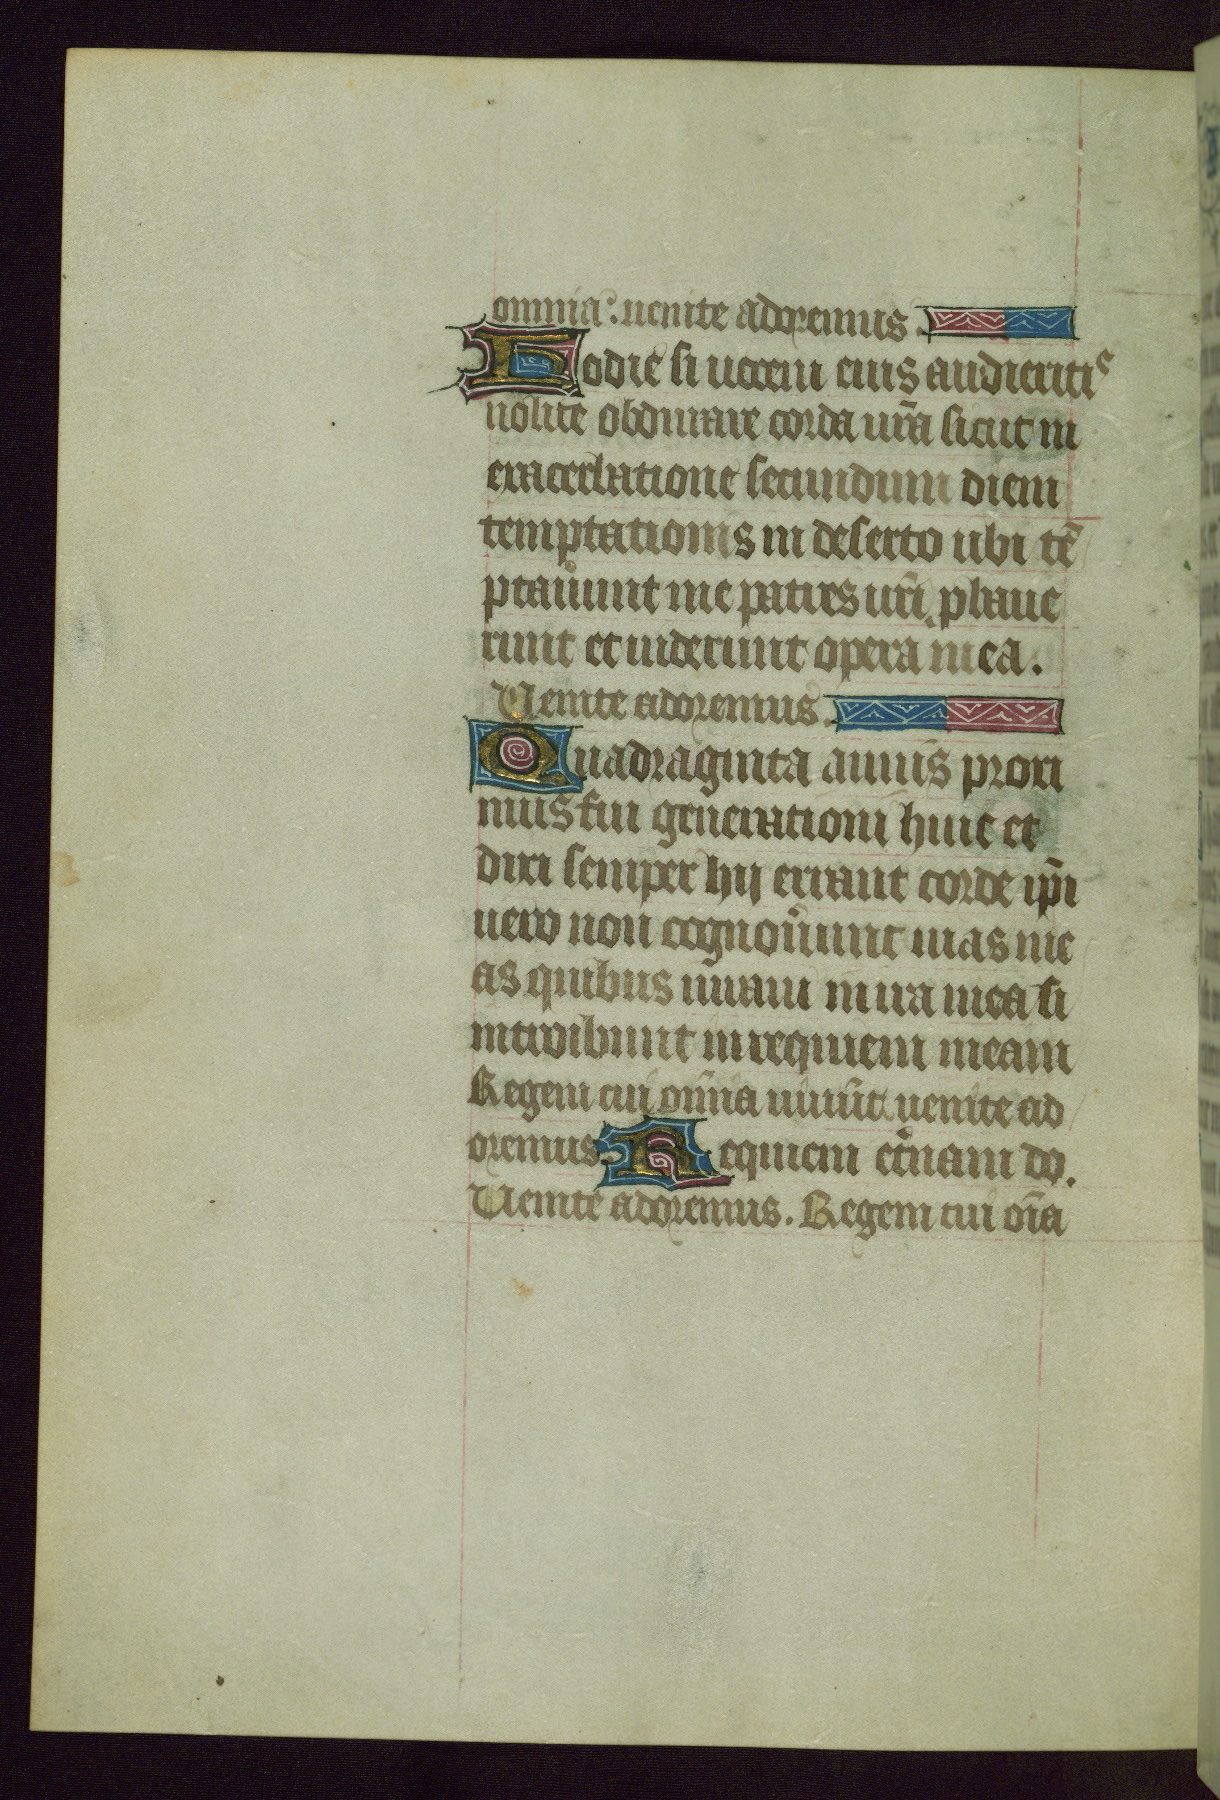 omnia: uenite adoremus
Hodie si uocem eius audieritis
nolite obdurare corda urā sicut in
exacerbatione secundum diem
temptationis in deserto ubi tē
ptauunt me patres uri, pbaue
runt et uiderunt opera mea.
Uenite adoremus.
Quadraginta annis proxi
mus fui generationi huic et
dixi semper hij errant corde ip̄i
uero non cognouunt uias me
as quibus iuraui in ira mea si
introibunt in requiem meam
Regem cui oīnia uiuūt. uenite ad
oremus. Requiem etnam do.
Uenite adoremus. Regem cui oīa